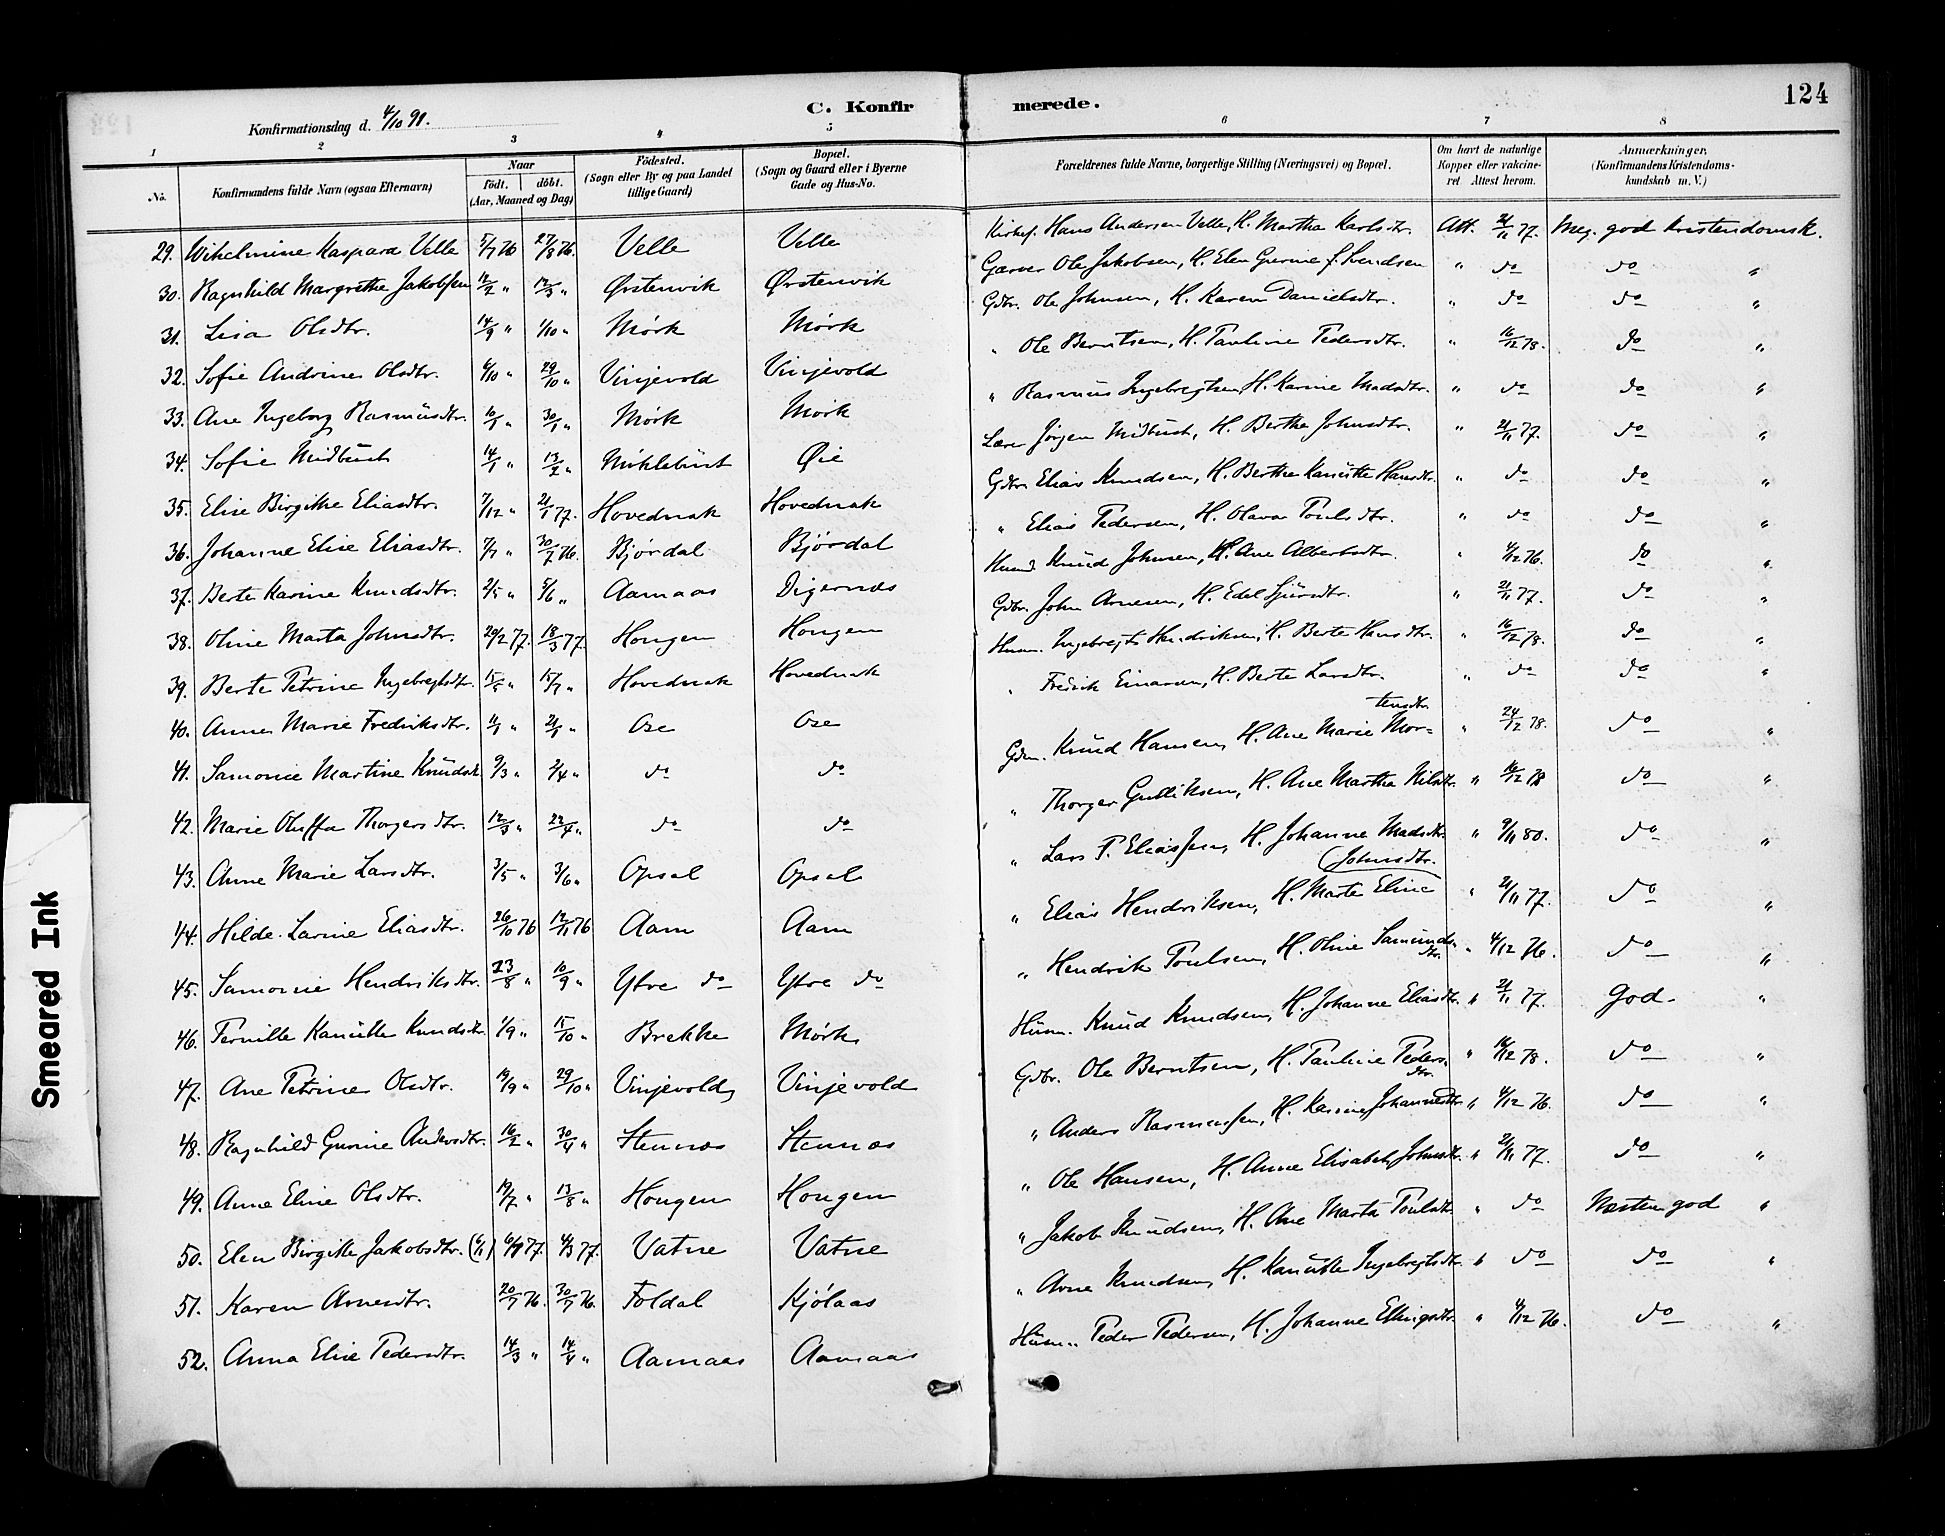 124
C. Konfirmerede.
Konfirmationsdag d. 4/10 91.
1 2 3 4 5 6 7 8
No. Konfirmandens fulde Navn (ogsaa Efternavn) Naar født. døbt. (Aar, Maaned og Dag) Födested. (Sogn eller By og paa Landet tillige Gaard) Bopæl. (Sogn og Gaard eller i Byerne Gade og Hus-No. Forældrenes fulde Navne, borgerlige Stilling (Næringsvei) og Bopæl. Om havt de naturlige Kopper eller vakcineret Attest herom. Anmærkninger. (Konfirmandens Kristendomskundskab m.V.)
29. Wilhelmine Kaspara Velle 5/7 76 27/8 76. Velle Velle Kirkef. Hans Andersen Velle, H. Martha Karlsdtr. Att. 21/11 77. Meg. god kristendomsk.
30. Ragnhild Margrethe Jakobsen 12/2 " 12/3 " Ørstenvik Ørstenvik Garver Ole Jakobsen, H. Elen Gurine f. Svendsen " do do "
31. Lisa Olsdtr. 14/9 " 1/10 " Mørk Mørk Gdbr. Ole Johnsen, H. Karen Danielsdtr. " do do "
32. Sofie Andrine Olsdtr. 6/10 " 29/10 " Vinjevold Vinjevold " Ole Berntsen, H. Pauline Pedersdtr. " 16/12 78. do "
33. Ane Ingeborg Rasmusdtr. 10/1 " 30/1 " Mørk Mørk " Rasmus Ingebregtsen, H. Karine Madsdtr. " do do "
34. Sofie Midbust 14/1 " 13/2 " Miklebust Øie Lær. Jørgen Midbust, H. Berthe Johnsdtr. " 21/11 77. do "
35. Elise Birgitte Eliasdtr. 7/12 " 21/1 77. Hovednak Hovednak Gdbr. Elias Knudsen, H. Berthe Kanutte Hansdtr. " do do "
36. Johanne Elise Eliasdtr. 7/7 " 30/7 76. Bjørdal Bjørdal " Elias Pedersen, H. Olava Poulsdtr. " do do "
37. Berte Karine Knudsdtr. 2/5 " 5/6 " Aamaas Digernæs Husm. Knud Johnsen, H. Ane Albertsdtr. " 4/12 76. do "
38. Oline Marta Johnsdtr. 20/2 77. 18/3 77. Hougen Hougen Gdbr. John Arnesen, H. Edel Sjursdtr. " 21/11 77. do "
39. Berte Petrine Ingebregtsdtr. 15/5 " 15/7 " Hovednak Hovednak Husm. Ingebregt Hendriksen, H. Berte Hansdtr. " 16/12 78. do "
40. Anne Marie Fredriksdtr. 11/1 " 21/1 " Ose Ose " Fredrik Einarsen, H. Berte Larsdtr. " do do "
41. Samonie Martine Knudsdt. 9/3 " 2/4 " do do Gdm. Knud Hansen, H. Ane Marie Mortensdtr. " 24/12 78. do "
42. Marie Oluffa Thorgersdtr. 12/3 " 22/4 " do do " Thorger Gulliksen, H. Ane Martha Nilsdtr. " 16/12 78 do "
43. Anne Marie Larsdtr. 3/5 " 3/6 " Opsal Opsal " Lars P. Eliassen, H. Johanne Madsdtr. " 9/11 80. do "
44. Hilde Larine Eliasdtr. 26/10 76 12/11 76 Aam Aam " Elias Hendriksen, H. Marte Eline Johnsdtr. " 21/11 77. do "
45. Samonie Hendriksdtr. 23/8 " 10/9 " Ytre do Ytre do " Hendrik Poulsen, H. Oline Samundsdtr. " 4/12 76. do "
46. Pernille Kanutte Knudsdtr. 1/9 " 15/10 " Brekke Mørk Husm. Knud Knudsen, H. Johanne Eliasdtr. " 21/11 77. God. "
47. Ane Petrine Olsdtr. 19/9 " 29/10 " Vinjevold Vinjevold Gdbr. Ole Berntsen, H. Pauline Pedersdtr. " 16/12 78. do "
48. Ragnhild Gurine Andersdtr. 16/2 " 30/4 " Stennæs Stennæs " Anders Rasmussen, H. Karine Johannesdtr " 4/12 76. do "
49. Anne Eline Olsdtr. 19/7 " 13/8 " Hougen Hougen " Ole Hansen, H. Anne Elisabeth Johnsdtr. " 21/11 77. do "
50. Elen Birgitte Jakobsdtr. (6/1) 6/1 77. 4/3 77. Vatne Vatne " Jakob Knudsen, H. Ane Marta Poulsdtr. " do Næsten god "
51. Karen Arnesdtr. 20/7 76. 30/7 76. Foldal Kjølaas " Arne Knudsen, H. Kanutte Ingebregtsdtr. " do do "
52. Anna Elise Pedersdtr. 14/3 " 14/4 " Aamaas Aamaas Husm. Peder Pedersen, H. Johanne Ellingsdtr. " 4/12 76. do "
Smeared Ink